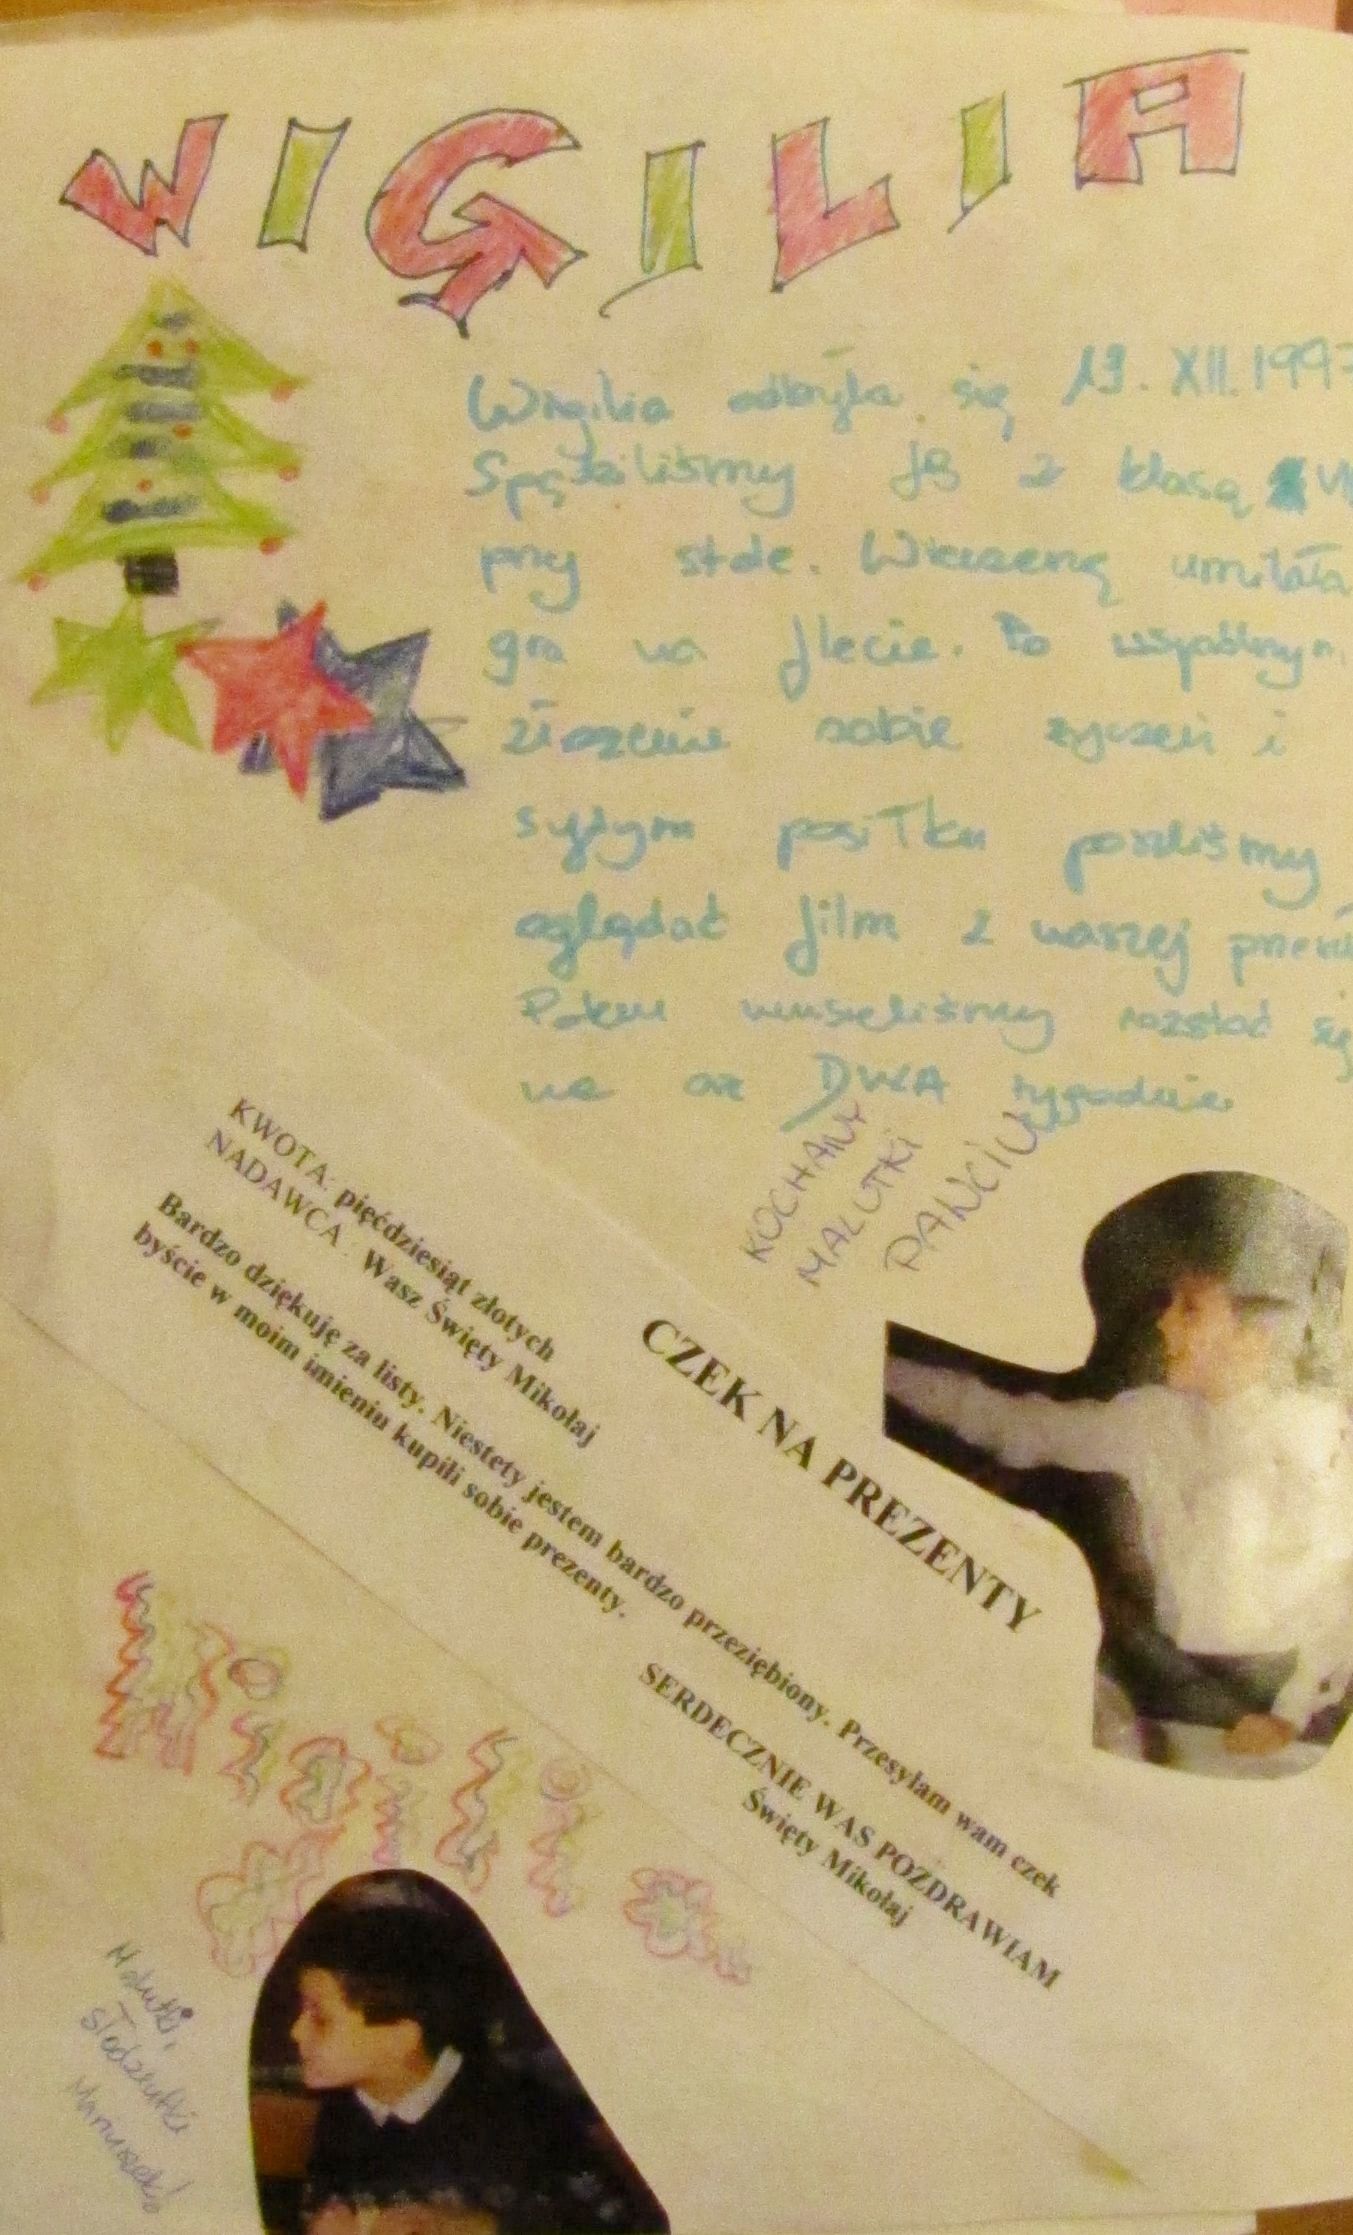 WIGILIA
Wigilia odbyła się 19. XII. 1997
Spędziliśmy ją z klasą
przy stole. Wieczerzę umilała
gra na flecie. Po wspólnym
złożeniu sobie życzeń i
sytym posiłku poszliśmy
oglądać film z naszej
Potem musieliśmy rozstać się
na aż DWA tygodnie
KOCHANY
MALUTKI
PANCIU
CZEK NA PREZENTY
KWOTA: pięćdziesiąt złotych
NADAWCA: Wasz Święty Mikołaj
Bardzo dziękuję za listy. Niestety jestem bardzo przeziębiony. Przesyłam wam czek
byście w moim imieniu kupili sobie prezenty.
SERDECZNIE WAS POZDRAWIAM
Święty Mikołaj
Malutki,
słodziutki
Mariuszek!